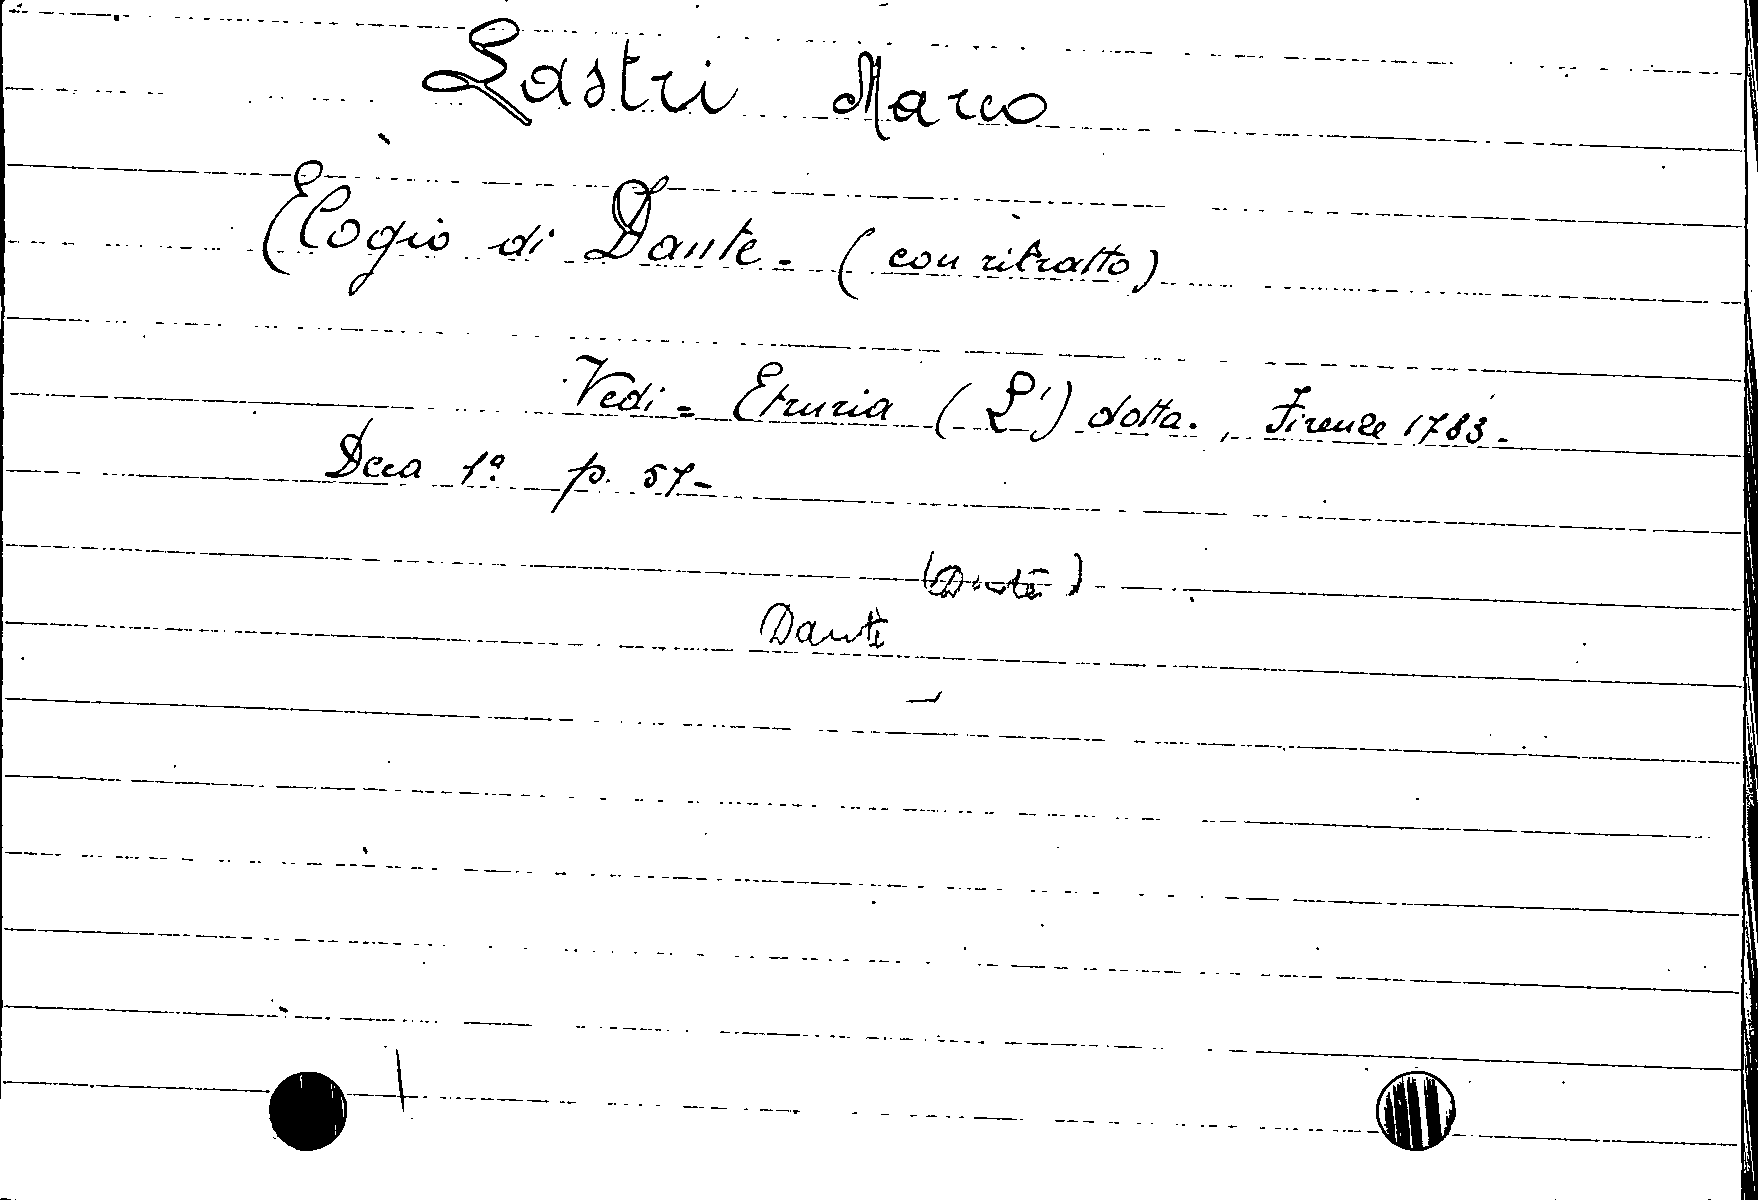 Lastri Marco
Elogio di Dante. (con ritratto)
Vedi = Etruria (L') dotta., Firenze 1783.
Deca 1ª p. 57-
(Dante)
Dante